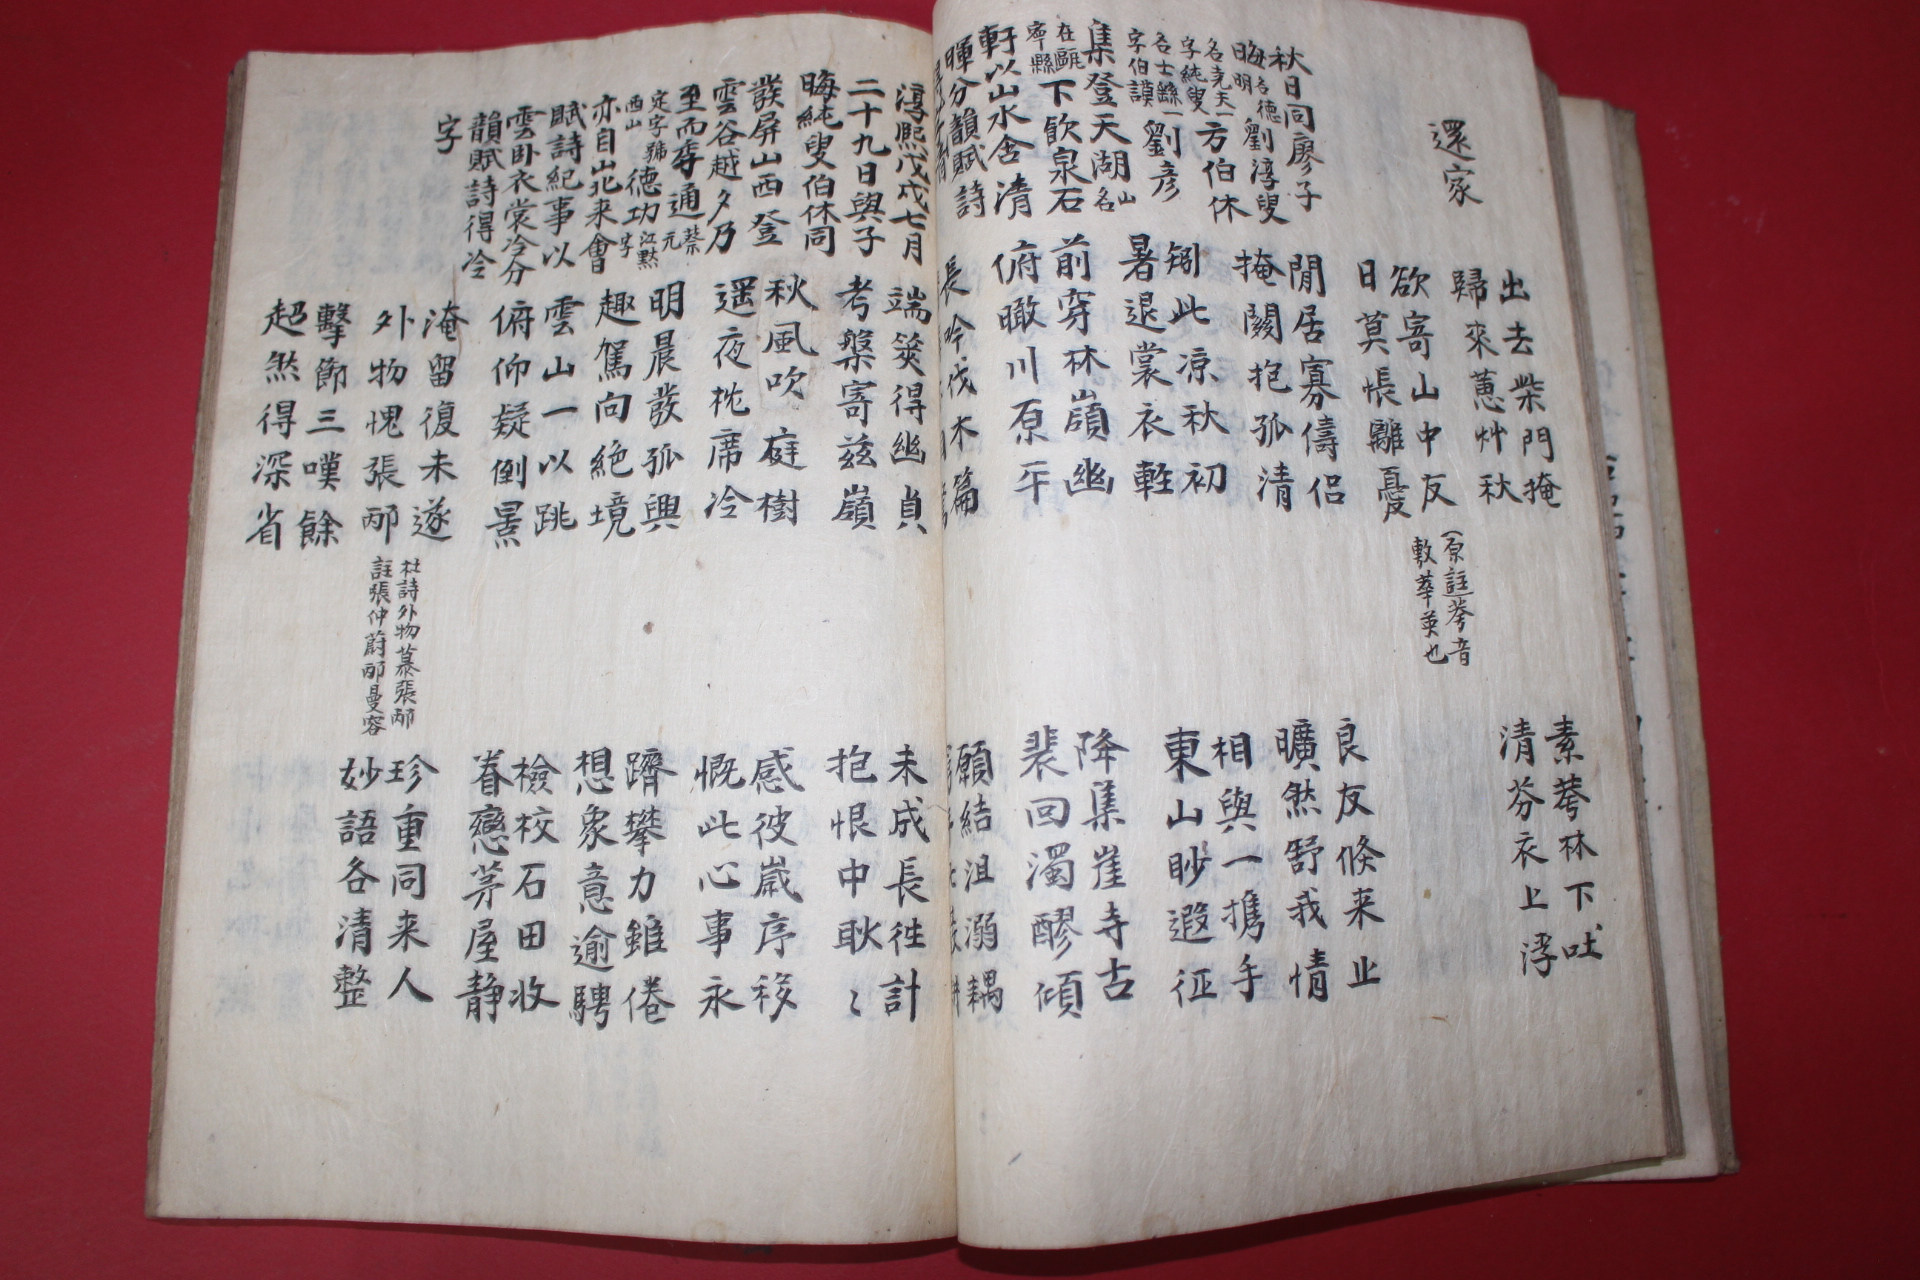 還家
出去柴門掩
歸來蕙艸秋
素萼林下吐
清芬衣上浮
欲寄山中友
日莫悵離憂
(原註萼音
敷華英也
秋日同廖子
晦名德明劉淳叟
名堯夫一字純叟方伯休
名士繇一字伯謨劉彦
集登天湖山名
在甌寧縣下飲泉石
軒以山水含清
暉分韻賦詩
閒居寡儔侶
掩關抱孤清
良友倏来止
曠然舒我情
矧此凉秋初
暑退裳衣輕
相與一携手
東山眇遐征
前穿林嶺幽
俯瞰川原平
降集崖寺古
裴回濁醪傾
長吟伐木篇
願結沮溺耦
淳熙戊戌七月
二十九日與子
晦純叟伯休同
發屏山西登
雲谷越夕乃
至而季通蔡元
定字號西山德功江黙字
亦自山北来會
賦詩紀事以
雲卧衣裳冷分
韻賦詩得冷
字
端筴得幽貞
考槃寄兹嶺
未成長往計
抱恨中耿〻
秋風吹庭樹
遥夜枕席冷
感彼歲序移
慨此心事永
明晨發孤興
趣駕向絶境
躋攀力雖倦
想象意逾騁
雲山一以跳
俯仰疑倒景
檢校石田收
眷戀茅屋静
淹留復未遂
外物愧張邴
杜詩外物慕張邴
註張仲蔚邴曼容
珍重同来人
妙語各清整
擊節三嘆餘
超然得深省